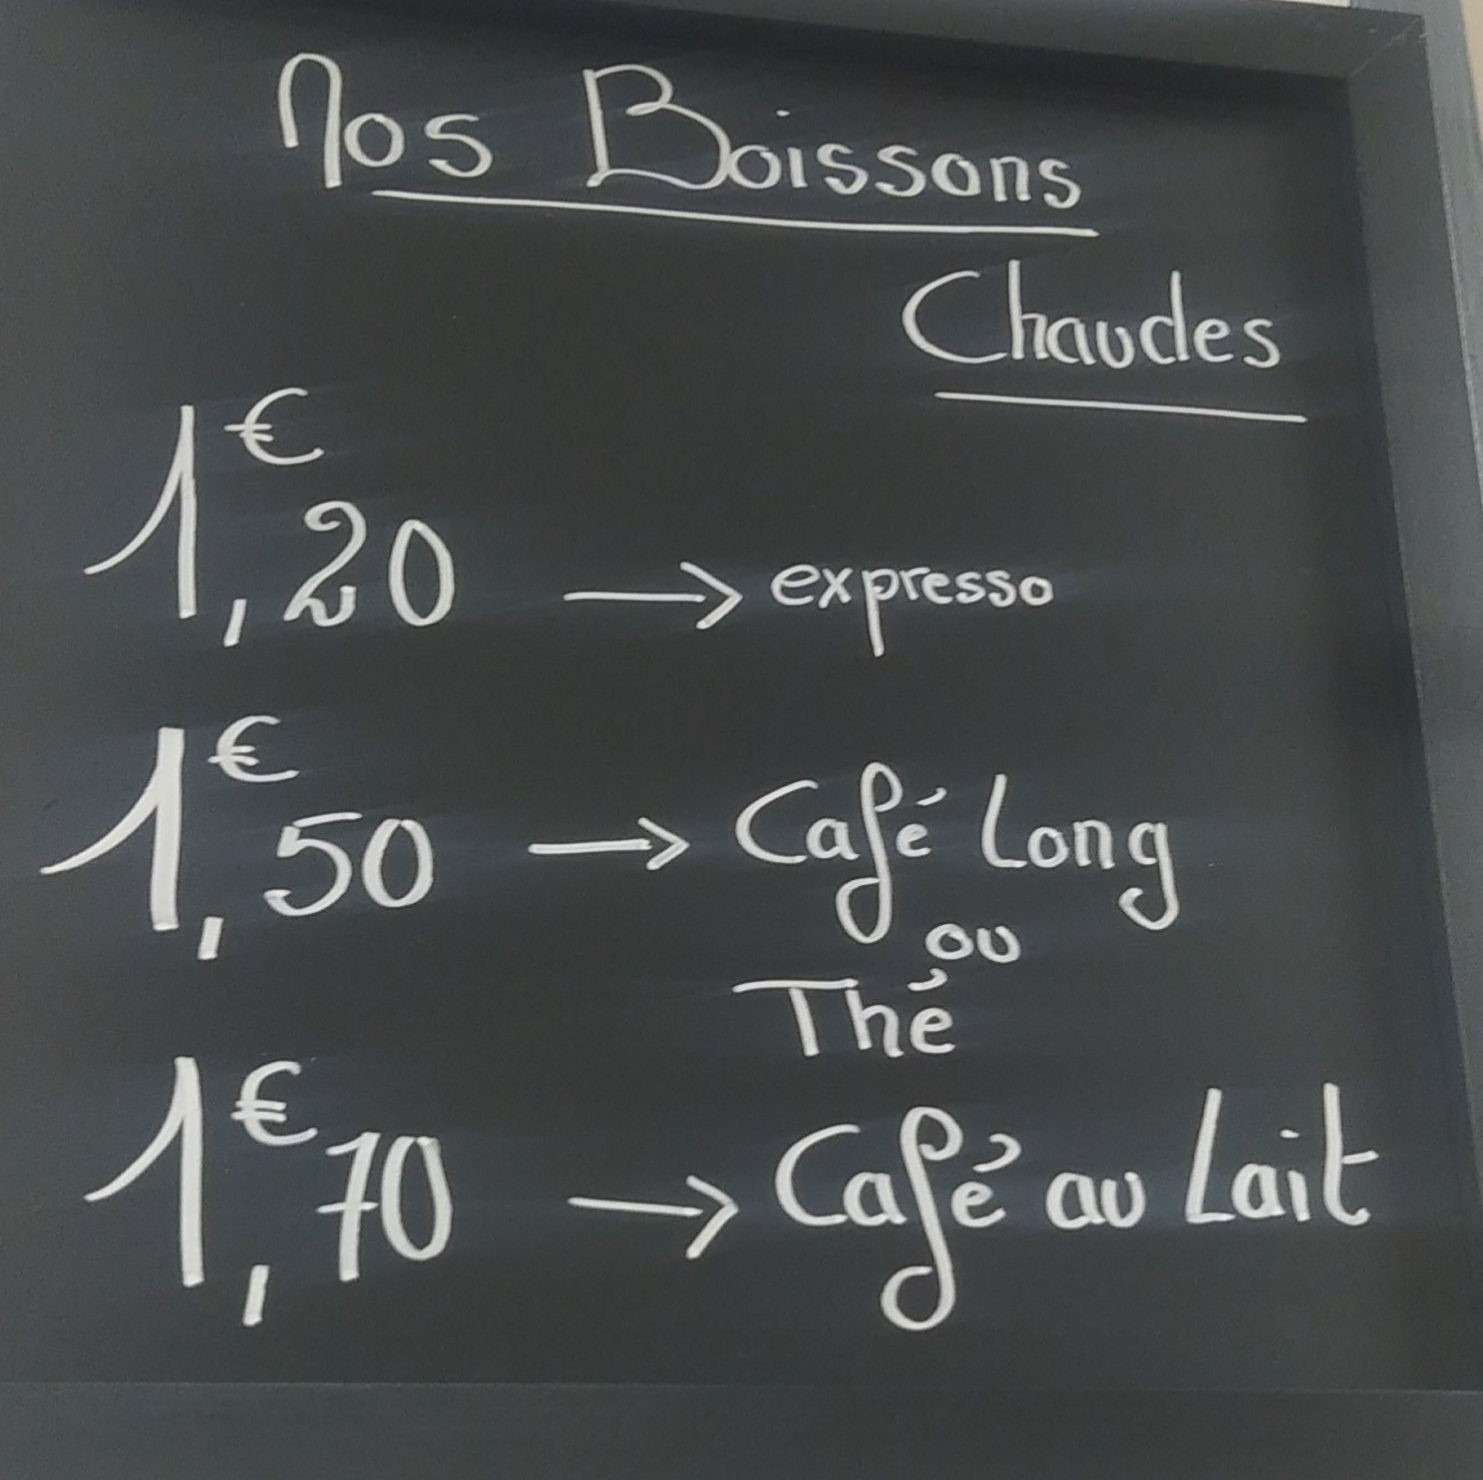 Nos Boissons
Chaudes
1€,20 → expresso
1€,50 → Café Long
ou
Thé
1€,70 → Café au Lait